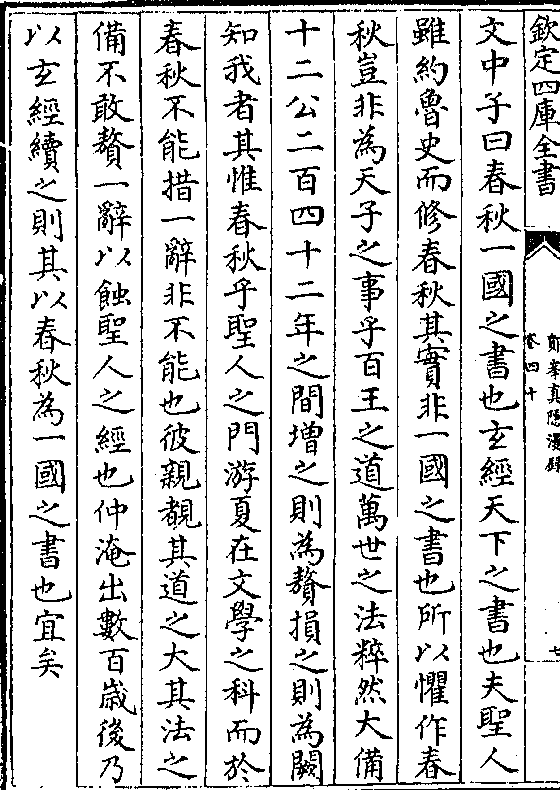 欽定四庫全書
鄮峯真隱漫錄
卷四十
七
文中子曰春秋一國之書也玄經天下之書也夫聖人
雖約魯史而修春秋其實非一國之書也所以懼作春
秋豈非為天子之事乎百王之道萬世之法粹然大備
十二公二百四十二年之間增之則為贅損之則為闕
知我者其惟春秋乎聖人之門游夏在文學之科而於
春秋不能措一辭非不能也彼親覩其道之大其法之
備不敢贅一辭以蝕聖人之經也仲淹出數百歲後乃
以玄經續之則其以春秋為一國之書也宜矣